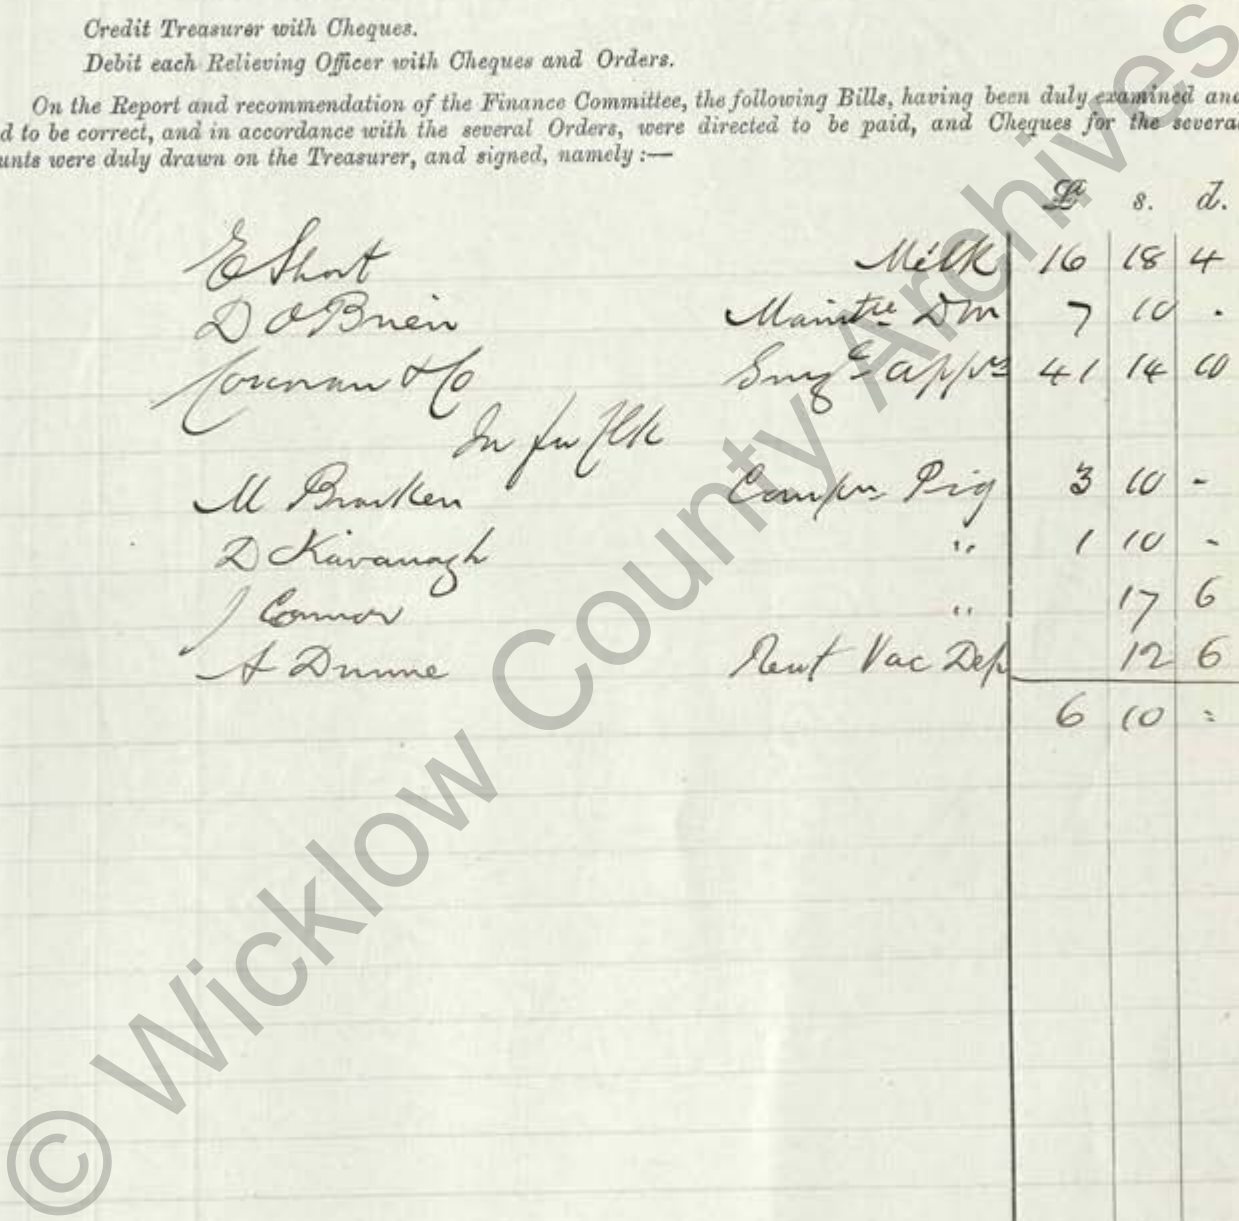 Credit Treasurer with Cheques.
Debit each Relieving Officer with Cheques and Orders.
On the Report and recommendation of the Finance Committee, the following Bills, having been duly examined and
d to be correct, and in accordance with the several Orders, were directed to be paid, and Cheques for the several
unts were duly drawn on the Treasurer, and signed, namely :—
£ s. d.
E Short Milk 16 18 4
D O'Brien Maintce 7 10 .
& Co 41 14 10
In
M Bracken Compn Pig 3 10 -
D Kavanagh " 1 10 -
J Connor " 17 6
A Dunne Rent Vac Dep 12 6
6 10 =
© Wicklow County Archives